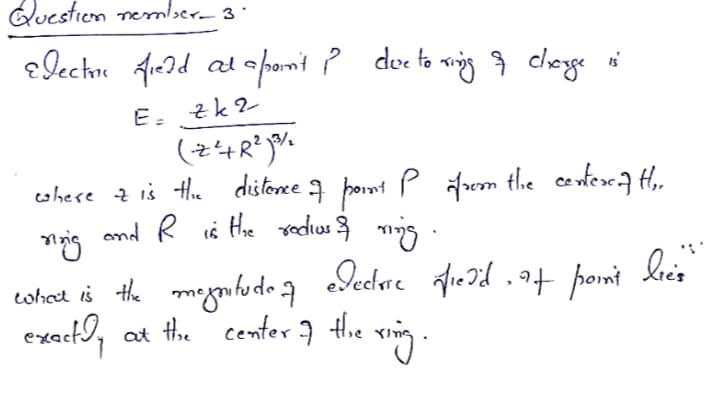 Question nember- 3.
Electric field at a point P due to ring of charge is
E = zkq
(z²+R²)^3/2
where z is the distance of point P from the center of the
ring and R is the radius of ring.
what is the magnitude of electric field, if point lies
exactly at the center of the ring.